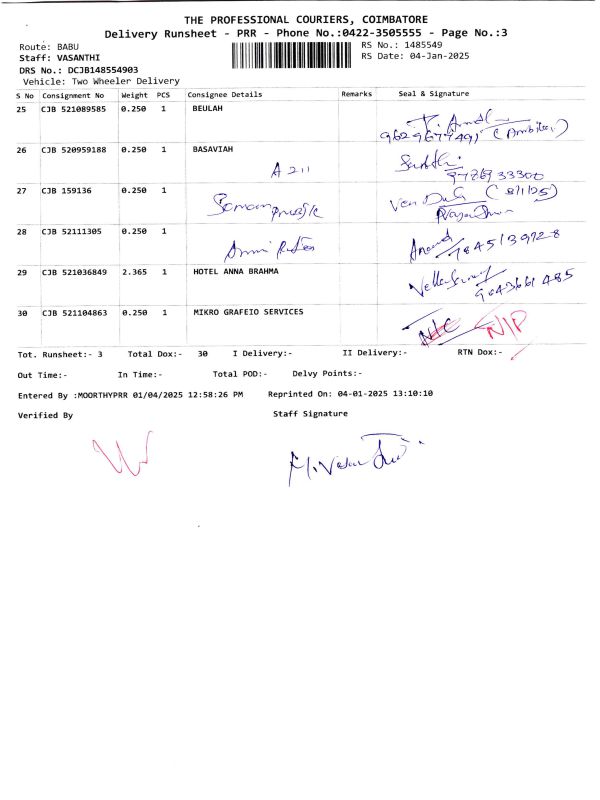 THE PROFESSIONAL COURIERS, COIMBATORE
Delivery Runsheet - PRR - Phone No.:0422-3505555 - Page No.:3
Route: BABU RS No.: 1485549
Staff: VASANTHI RS Date: 04-Jan-2025
DRS No.: DCJB148554903
Vehicle: Two Wheeler Delivery
S No Consignment No Weight PCS Consignee Details Remarks Seal & Signature
25 CJB 521089585 0.250 1 BEULAH
26 CJB 520959188 0.250 1 BASAVIAH
A 211
9786933300
27 CJB 159136 0.250 1
28 CJB 52111305 0.250 1
Anand 7845139728
29 CJB 521036849 2.365 1 HOTEL ANNA BRAHMA
9043661485
30 CJB 521104863 0.250 1 MIKRO GRAFEIO SERVICES
N/C N/P
Tot. Runsheet:- 3 Total Dox:- 30 I Delivery:- II Delivery:- RTN Dox:-
Out Time:- In Time:- Total POD:- Delvy Points:-
Entered By :MOORTHYPRR 01/04/2025 12:58:26 PM Reprinted On: 04-01-2025 13:10:10
Verified By Staff Signature